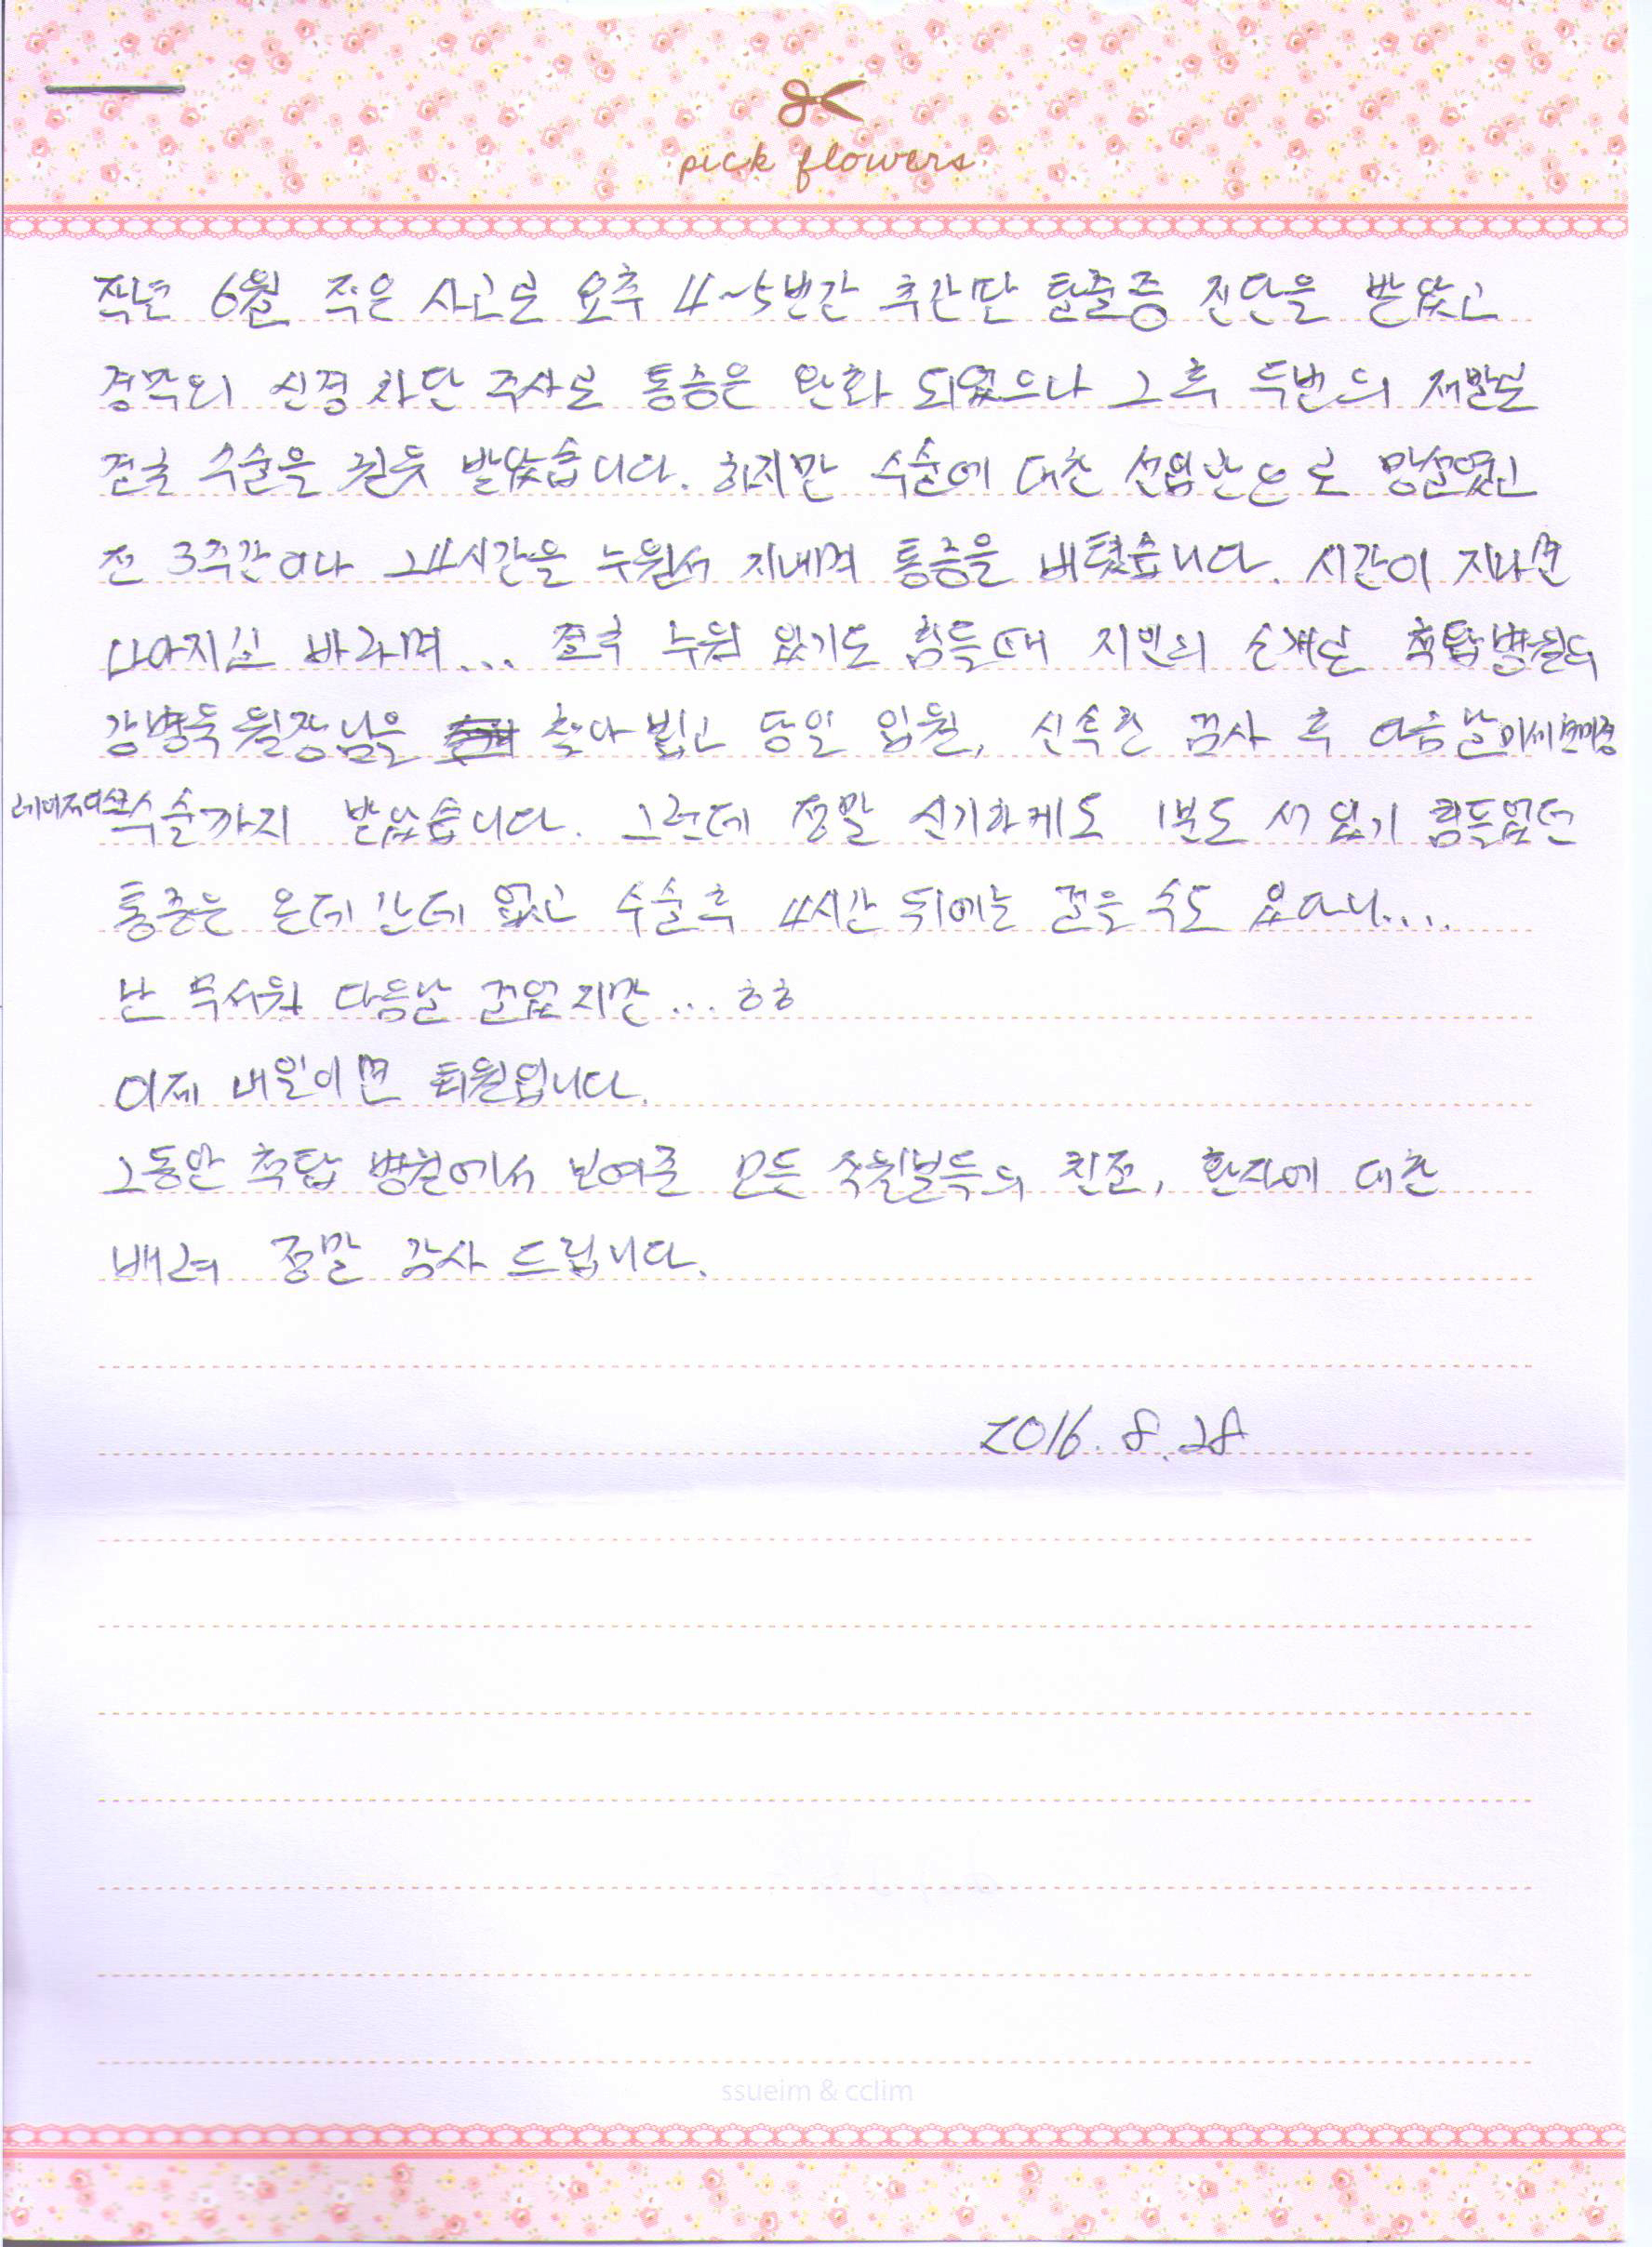 pick flowers
작년 6월 적은 사고로 요추 4~5번간 추간판 탈출증 진단을 받았고
경막외 신경 차단 주사로 통증은 완화 되었으나 그 후 두번의 재발로
결국 수술을 권유 받았습니다. 하지만 수술에 대한 선입관으로 망설였고
전 3주간이나 24시간을 누워서 지내며 통증을 버텼습니다. 시간이 지나면
나아지길 바라며... 결국 누워 있기도 힘들때 지인의 소개로 척탑병원의
강병욱원장님을 찾아 뵙고 당일 입원, 신속한 검사 후 다음날 미세현미경
레이저디스크 수술까지 받았습니다. 그런데 정말 신기하게도 1분도 서 있기 힘들었던
통증은 온데 간데 없고 수술후 4시간 뒤에는 걸을 수도 있다니....
난 무서워 다음날 걸었지만... ㅎㅎ
이제 내일이면 퇴원입니다.
그동안 척탑 병원에서 보여준 모든 직원분들의 친절, 환자에 대한
배려 정말 감사 드립니다.
2016. 8. 28
ssueim & cclim